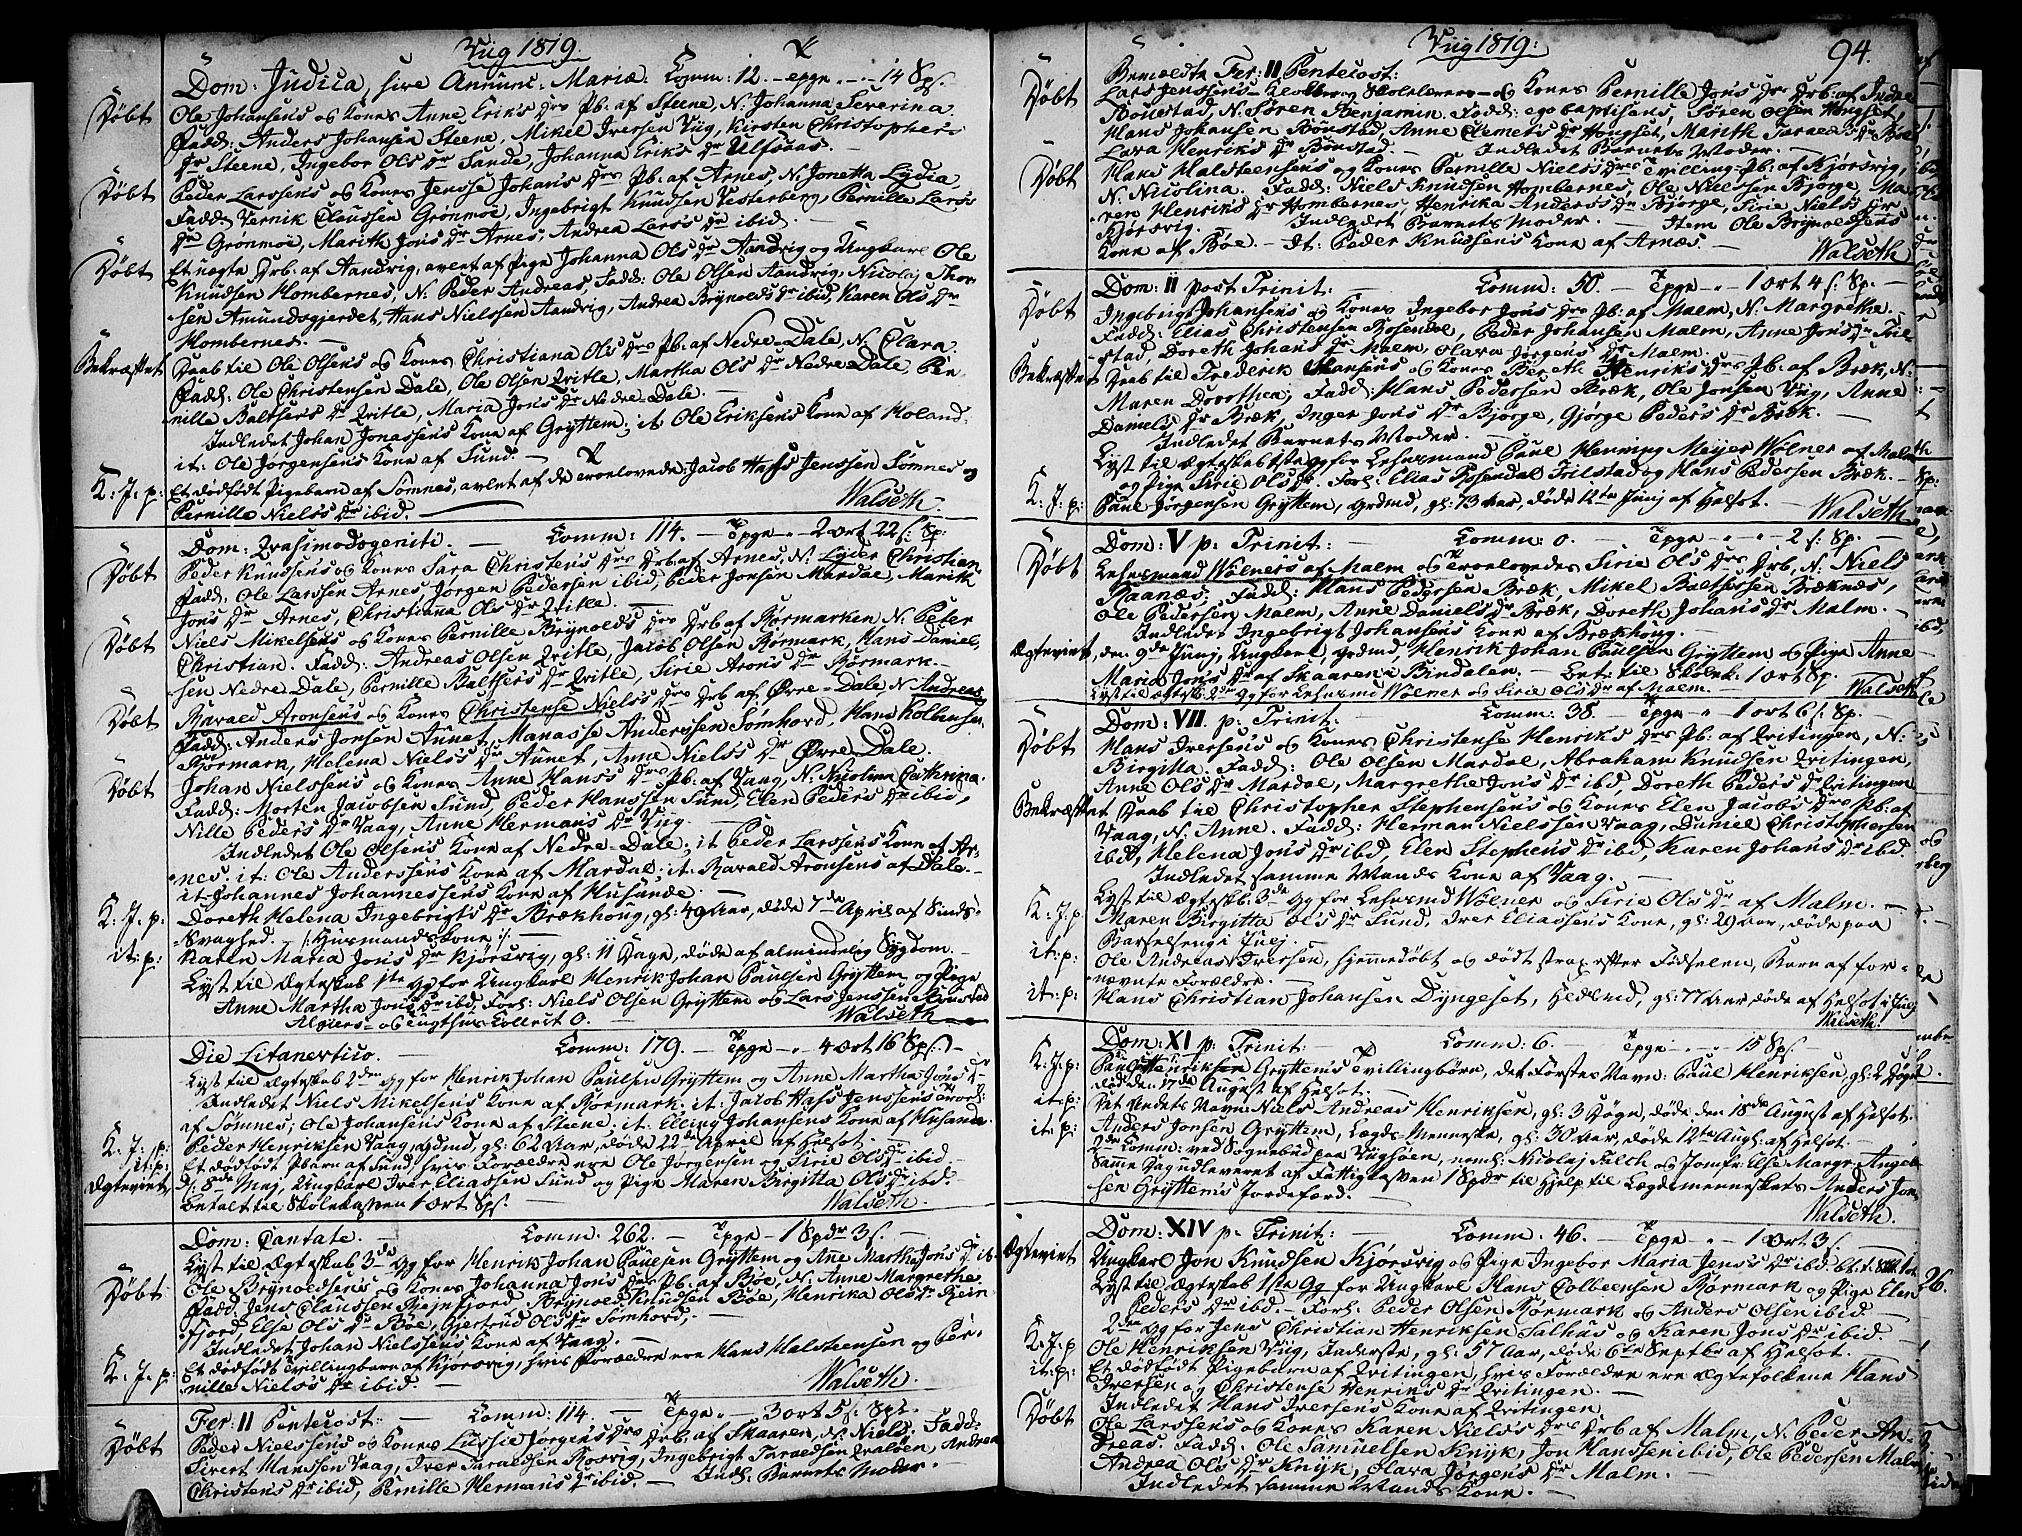 Vug 1819.
Dom: Judica, sive Annunt: Mariæ. Comm: 12. — Tpge. „ - 14 Sps.
Døbt
Ole Johansens og Kones Anne Eriks Drs Pb. af Steene, N: Johanna Severina
Fadd: Anders Johansen Steene, Mikel Iversen Vug, Kirsten Christophers
Dr Steene, Ingebor Ols Dr Sande, Johanna Eriks Dr Ulfsaas.
Døbt
Peder Larssens og Kones Jensse Johans Drs Pb. af Arnes, N. Jonetta Lydia,
Fadd: Bernik Claussen Grønmoe, Ingebrigt Knudsen Vesterberg, Pernille Lars
Dr Grønmoe, Marith Jons Dr Arnes, Andrea Lars's Dr ibid.
Døbt
Et uægte Drb. af Aandvig, avlet af Pige Johanna Ols Dr Aandvig og Ungkarl Ole
Knudsen Hombernes, N: Peder Andreas, Fadd: Ole Olsen Aandvig, Nicolaj Thor-
sen Amundsgjerdet, Hans Nielssen Aandvig, Andrea Brynolds Dr ibid, Karen Ols Dr
Hombernes. —
Bekræftet
Daab til Ole Olsens og Kones Christiana Ols Drs Pb. af Nedre-Dale, N. Clara.
Fadd: Ole Christensen Dale, Ole Olsen Qvitle, Martha Ols Dr Nedre Dale, Per-
nille Baltsers Dr Qvitle, Maria Jons Dr Nedre-Dale. —
Indledet Johan Jonassens Kone af Gryttem; it Ole Eriksens Kone af Holand.
it: Ole Jørgensens Kone af Sund. —
K: J: p:
Et dødfødt Pigebarn af Sømnes, avlet af de trovlovede: Jacob Hass Jenssen Sømnes og
Pernille Niels's Dr ibid. — Walseth.
Dom: Qvasimodogeniti. — Comm: 114. — Tpge „ 2 ort 22 s: Sp.
Døbt
Peder Knudsens og Kones Sara Christens Drs Drb. af Arnes, N: Lyder Christian
Fadd. Ole Larssen Arnes, Jørgen Pedersen ibid, Peder Jonsen Mardal, Marith
Jons Dr Arnes, Christiana Ols Dr Qvitle. —
Døbt
Niels Mikelsens og Kones Pernille Brynolds Drs Drb af Kørmarken N: Peter
Christian. Fadd: Andreas Olsen Qvitle, Jacob Olsen Kørmark, Hans Daniel-
sen Nedre-Dale, Pernille Baltsers Dr Qvitle, Sirie Arons Dr Kørmark. —
Døbt
Barald Aronsens og Kones Christense Niels's Drs Drb af Øvre-Dale N Andreas
Fadd: Anders Jonsen Aunet, Manasse Anderssen Sømhovd, Hans Kolbensen
Kørmark, Helena Niels's Dr Aunet, Anne Niels's Dr Øvre Dale.
Døbt
Johan Nielssens og Kones Anne Hans's Drs Pb. af Vaag, N. Nicolina Cathrina.
Fadd: Morten Jacobsen Sund, Peder Hanssen Sund, Elen Peders Dr ibid,
Nille Peders Dr Vaag, Anne Hermans Dr Vug. —
Indledet Ole Olsens Kone af Nedre-Dale, it Peder Larssens Kone af Ar-
nes. it: Ole Anderssens Kone af Mardal; it: Baraald Aronsens af Dale. —
it: Johannes Johannessens Kone af Husende. —
K: J: p:
Doreth Helena Ingebrigts Dr Brækhong, gl: 49 Aar, døde 7de April af Sinds-
Svaghed. — /: Husmands Kone :/. —
it: p:
Karen Maria Jons Dr Kjørsvig, gl: 11 Dage, døde af almindelig Sygdom.
Lyst til Ægteskab 1ste Gg for Ungkarl Henrik Johan Paulsen Gryttem og Pige
Anne Martha Jons Dr ibid. Forl: Niels Olsen Gryttem og Lars Jenssen
Algiers- og Tugthus Collect 0. — Walseth.
Die Litanevtico. — Comm: 179. — Tpge „ 4 ort 16 s Sp. —
Lyst til Ægteskab 2den Gg for Henrik Johan Paulsen Gryttem og Anne Martha Jons Dr
Indledet Niels Mikelsens Kone af Kørmark. it: Jacob Hass Jenssens trov:
af Sømnes; Ole Johansens Kone af Steene. it: Elling Johansens Kone af Husende.
K: J: p:
Peder Henriksen Vaag, Grdmd, gl: 62 Aar, døde 22de April af Helsot. —
it: p:
Et dødfødt Pbarn af Sund, hvis Forældre ere Ole Jørgensen og Sirie Ols Dr ibid. —
Ægteviet
d: 8de Maj, Ungkarl Iver Eliassen Sund og Pige Maren Birgitta Ols Dr ibid.
betalt til Skolekassen 1 ort Sps. Walseth.
Dom: Cantate. — Comm: 262. — Tpge - 1 Spdr 3 s. —
Lyst til Ægteskab 3die Gg for Henrik Johan Paulsen Gryttem og Ane Martha Jons Dr ib-
Døbt
Ole Brynoldsens og Kones Johanna Jons Drs Pb. af Bøe, N. Anne Margrethe
Fadd. Jens Claussen Reinfjord, Brynold Knudsen Bøe, Henrika Ols Dr Rein-
fjord, Else Ols Dr Bøe, Gjertrud Ols Dr Sømhovd, —
Indledet Johan Nielssens Kone af Vaag. —
K: J: p:
Et dødfødt Tvillingbarn af Kjørsvig, hvis Forældre ere Hans Halsteensen og Per-
nille Niels's Dr ibid. — Walseth.
Fer: II Pentecost: — Comm: 114. — Tpge „ 3 ort 5 s: Sps. —
Døbt
Peder Nielssens og Kones Lussie Jørgens Drs Drb: af Skaaren, N: Niels. Fadd:
Sivert Hanssen Vaag, Iver Taraldsen Rørvig, Ingebrigt Taraldsen Qvaløen, Andrea
Christens Dr ibid, Pernille Hermans Dr ibid. — Indl: Barnets Moder. —
Vug 1819: 94.
Bemældte Fer: II Pentecost:
Døbt
Lars Jenssens Klokker og Skolelærers og Kones Pernille Jons Drs Drb: af Indre
Bønestad, N. Søren Benjamin. Fadd: ego baptisens, Søren Olsen Hongset,
Hans Johansen Bønstad, Anne Clemets Dr Hongset, Marith Taraldsdr Bøne
Lara Henriks Dr Bønstad. — Indledet Barnets Moder. —
Døbt
Hans Halsteensens og Kones Pernille Niels's Drs Tvilling-Pb: af Kjørsvig,
N. Nicolina. Fadd: Niels Knudsen Hombernes, Ole Nielssen Bjørge, Ma-
ren Henriks Dr Hombernes, Henrika Anders Dr Bjørge, Sirie Niels's Dr
Kjørsvig. Indledet Barnets Moder. — Item Ole Brynoldsens
Kone af Bøe. — It: Peder Knudsens Kone af Arnæs. — Walseth
Dom: II post Trinit: — Comm: 50. — Tpge - „ 1 ort 4 s. Sp. —
Døbt
Ingebrigt Johansens og Kones Ingebor Jons Drs Pb: af Malm, N. Margretha.
Fadd: Elias Christensen Rosendal, Peder Johansen Malm, Anne Jons Dr Til-
stad, Doreth Johans Dr Malm, Olava Jørgens Dr Malm.
Bekræftet
Daab til Frederik Hansens og Kones Bereth Henriks Drs Pb: af Bræk, N:
Maren Dorothea; Fadd: Hans Pedersen Bræk, Ole Jonsen Vug, Anne
Daniels Dr Bræk, Inger Jons Dr Bjørge, Gjørge Peders Dr Bræk. —
Indledet Barnets Moder. —
Lyst til Ægteskab 1ste Gg for Lehnsmand Paul Henning Meyer Wølner af Malm
og Pige Sirie Ols Dr. Forl: Elias Rosendal Tilstad og Hans Pedersen Bræk. —
K: J: p:
Paul Jørgensen Gryttem, Grdmd, gl: 73 Aar, døde 12te Junj af Helsot. — Walseth
Dom: V p: Trinit: — Comm: 0. — Tpge - „ - 2 s. Sp. —
Døbt
Lehnsmand Wølners af Malm og Trovlovedes Sirie Ols Drs Drb, N: Niels
Raanæs. Fadd: Hans Pedersen Bræk, Mikel Balthersen Bræknæs,
Ole Pedersen Malm, Anne Daniels Dr Bræk, Doreth Johans Dr Malm. —
Indledet Ingebrigt Johansens Kone af Brækhong.
Ægteviet,
den 9de Junj, Ungkarl, Grdmd, Henrik Johan Paulsen Gryttem og Pige Anne
Maria Jons Dr af Skaaren i Bindalen. — Bet: til Skolek: 1 ort Sp.
Lyst til Ægtesk: 2den Gg for Lehnsmd Wølner og Sirie Ols Dr af Malm. — Walseth
Dom: VII. p: Trinit: — Comm: 38. — Tpge „ 1 ort 6 s: Sp. —
Døbt
Hans Iversens og Kones Christense Henriks Drs Pb: af Qvitingen, N:
Birgitta. Fadd: Ole Olsen Mardal, Abraham Knudsen Qvitingen,
Anne Ols Dr Mardal, Margrethe Jons Dr ibd, Doreth Peders Dr Qvitingen
Bekræftet
Daab til Christopher Stephensens og Kones Elen Jacobs Drs Pb: af
Vaag, N: Anne. Fadd: Herman Nielssen Vaag, Daniel Christophersen
ibid, Helena Jons Dr ibd, Elen Stephens Dr ibid, Karen Johans Dr ibd.
Indledet samme Mands Kone af Vaag. —
Lyst til Ægtesk: 3de Gg for Lehnsmd Wølner og Sirie Ols Dr af Malm. —
K: J: p
Maren Birgitta Ols Dr Sund, Iver Eliassens Kone, gl: 29 Aar, døde paa
Barselseng i Julj. —
it: p:
Ole Andreas Iversen, hjemmedøbt og dødt strax efter Fødselen, Barn af for-
nævnte Forældre. —
it: p:
Hans Christian Johansen Dyngeset, Hedlmd, gl: 77 Aar, døde af Helsot i Julj
Walseth.
Dom: XI p: Trinit: — Comm: 6. — Tpge - „ - 15 Sps.
K: J: p:
Paul Henriksen Gryttems Tvillingbørn, det Førstes Navn: Paul Henriksen, gl: 2 Døgn
død den 17de August af Helsot. —
it: p:
Det Andets Navn: Niels Andreas Henriksen, gl: 3 Døgn, døde den 18de August af Helsot.
it: p:
Anders Jonsen Gryttem, Lægds-Menneske, gl: 30 Aar, døde 12te Augs: af Helsot. —
2de Comm: ved Sognebud paa Vugsøen, neml: Nicolaj Falch og Jomfr: Else Margr: Angel-
Samme Dag udleveret af Fattigkassen 1 Spdr til Hjelp til Lægdsmenneskets Anders Jon-
sen Gryttems Jordefærd. — Walseth.
Dom: XIV p: Trinit: — Comm: 46. — Tpge „ 1 ort 3 s. —
Ægteviet
Ungkarl Jon Knudsen Kjørsvig og Pige Ingebor Maria Jens's Dr ibid. bt. t. Skk. 1 ort
Lyst til Ægteskab 1ste Gg for Ungkarl Hans Colbeensen Kørmark og Pige Elen
Peders Dr ibid. — Forl: Peder Olsen Kørmark og Anders Olsen ibid. —
2den Gg for Jens Christian Henriksen Salhus og Karen Jons Dr ibid. —
K: J: p
Ole Henriksen Vug, Inderste, gl: 57 Aar, døde 6te Septbr af Helsot. —
it: p:
Et dødfødt Pigebarn af Qvitingen, hvis Forældre ere Ægtefolkene Hans
Iversen og Christense Henriks Dr Qvitingen. —
Indledet Hans Iversens Kone af Qvitingen. —
Døbt
Ole Larssens og Kones Karen Niels's Drs Drb af Malm, N. Peder An-
dreas. Fadd: Ole Samuelsen Knyk, Jon Hanssen ibid, Ole Pedersen Malm
Andrea Ols Dr Knyk, Olava Jørgens Dr Malm. —
Indledet samme Mands Kone. —
26.